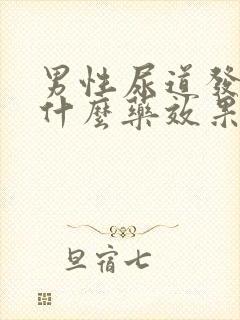 男性尿道發
什麼藥效果
旦宿七